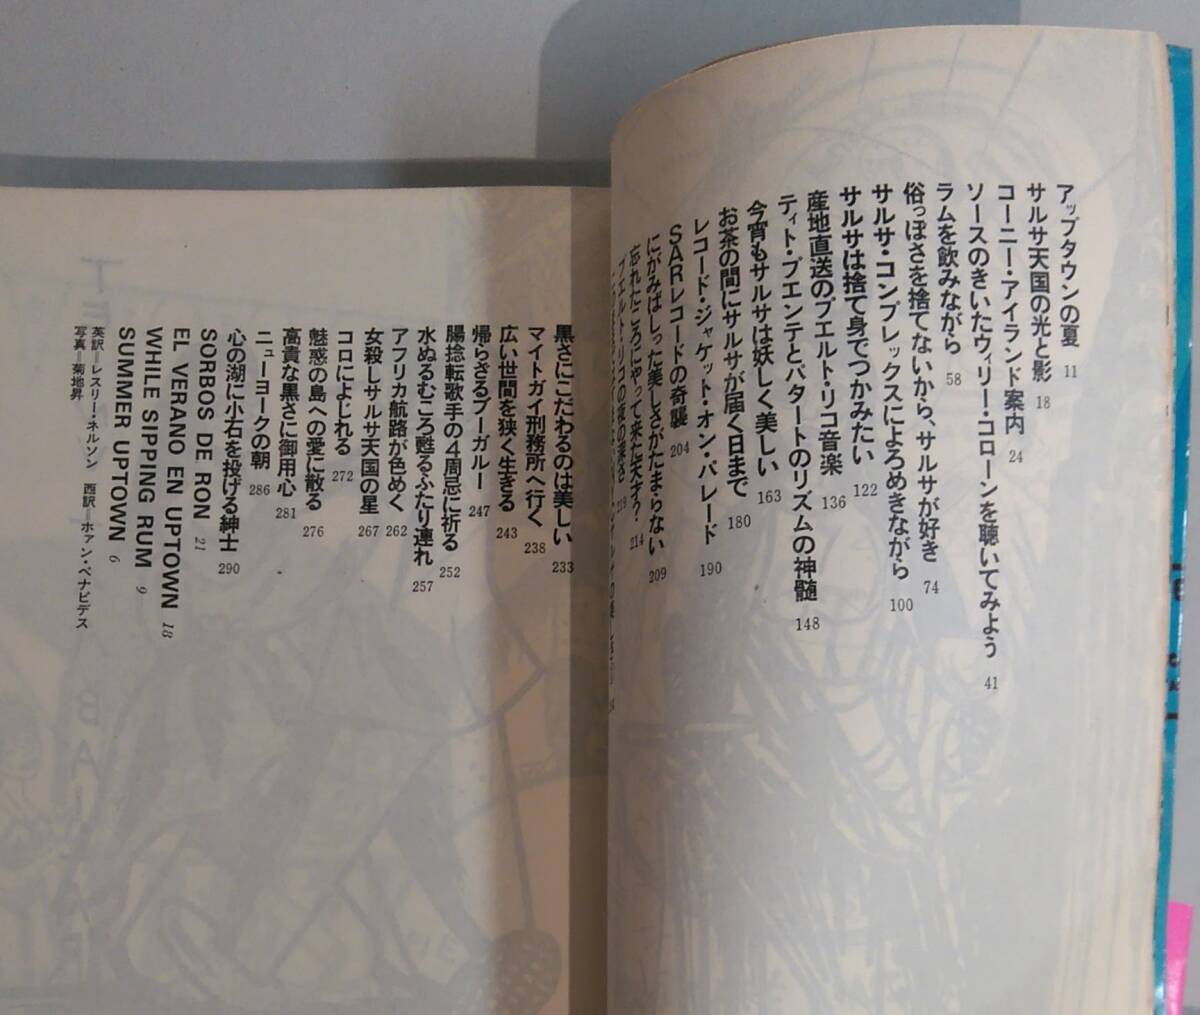 アップタウンの夏 11
サルサ天国の光と影 18
コーニー・アイランド案内 24
ソースのきいたウィリー・コローンを聴いてみよう 41
ラムを飲みながら 58
俗っぽさを捨てないから、サルサが好き 74
サルサ・コンプレックスによろめきながら 100
サルサは捨て身でつかみたい 122
産地直送のプエルト・リコ音楽 136
ティト・プエンテとパタートのリズムの神髄 148
今宵もサルサは妖しく美しい 163
お茶の間にサルサが届く日まで 180
レコード・ジャケット・オン・パレード 190
SARレコードの奇襲 204
にがみばしった美しさがたまらない 209
忘れたころにやって来た天才? 214
プエルト・リコの夜の深さ 219
黒さにこだわるのは美しい 233
マイトガイ刑務所へ行く 238
広い世間を狭く生きる 243
帰らざるブーガルー 247
腸捻転歌手の4周忌に祈る 252
水ぬるむころ甦るふたり連れ 257
アフリカ航路が色めく 262
女殺しサルサ天国の星 267
コロによじれる 272
魅惑の島への愛に散る 276
高貴な黒さに御用心 281
ニューヨークの朝 286
心の湖に小石を投げる紳士 290
SORBOS DE RON 21
EL VERANO EN UPTOWN 18
WHILE SIPPING RUM 9
SUMMER UPTOWN 6
英訳=レスリー・ネルソン 西訳=ホァン・ベナビデス
写真=菊地昇